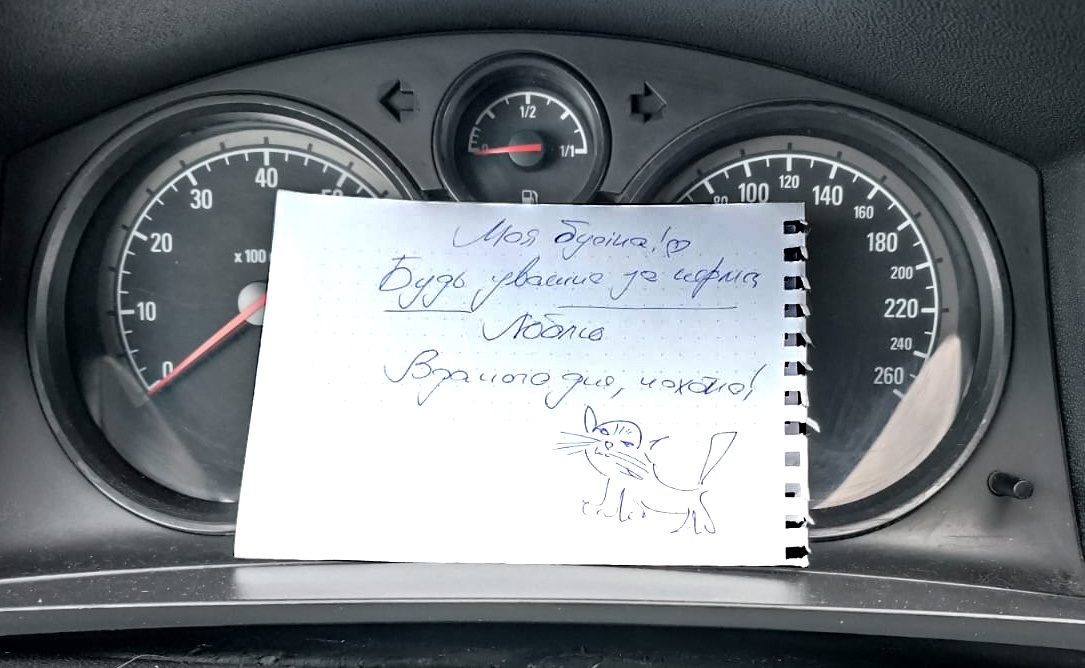 1/2
0 1/1
10 20 30 40 50
x 100
0
80 100 120 140 160 180 200 220 240 260
Моя бусіна!
Будь уважна за кермом
Люблю
Вдалого дня, кохана!